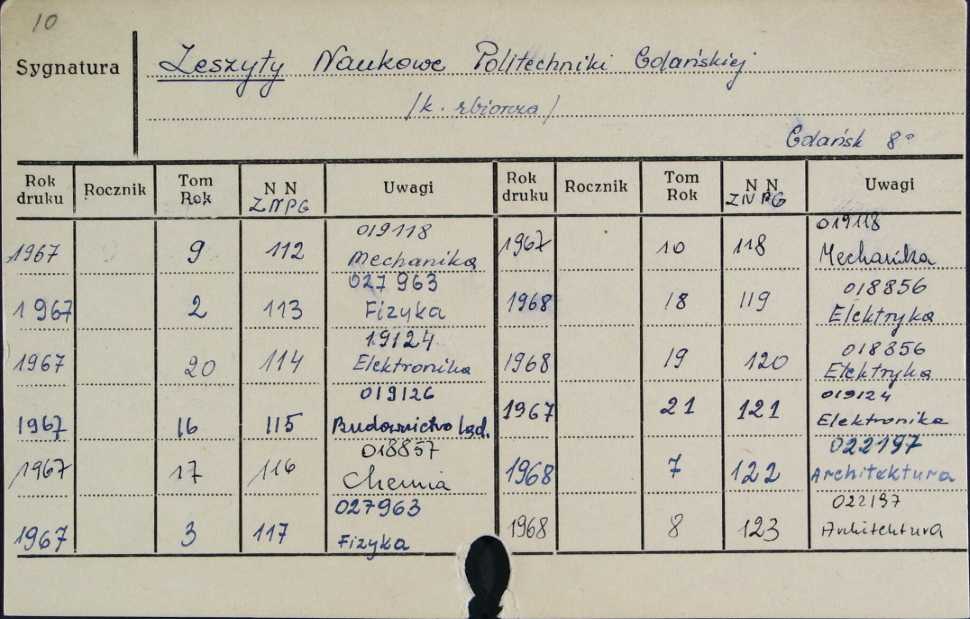 10
Sygnatura Zeszyty Naukowe Politechniki Gdańskiej
/k. zbiorcza/
Gdańsk 8°
Rok druku Rocznik Tom Rok N N ZNPG Uwagi Rok druku Rocznik Tom Rok N N ZNPG Uwagi
1967 9 112 019118 Mechanika 1967 10 118 019118 Mechanika
1967 2 113 027963 Fizyka 1968 18 119 018856 Elektryka
1967 20 114 19124 Elektronika 1968 19 120 018856 Elektryka
1967 16 115 019126 Budownictwo Ląd. 1967 21 121 019124 Elektronika
1967 17 116 018857 Chemia 1968 7 122 022197 Architektura
1967 3 117 027963 Fizyka 1968 8 123 022197 Architektura